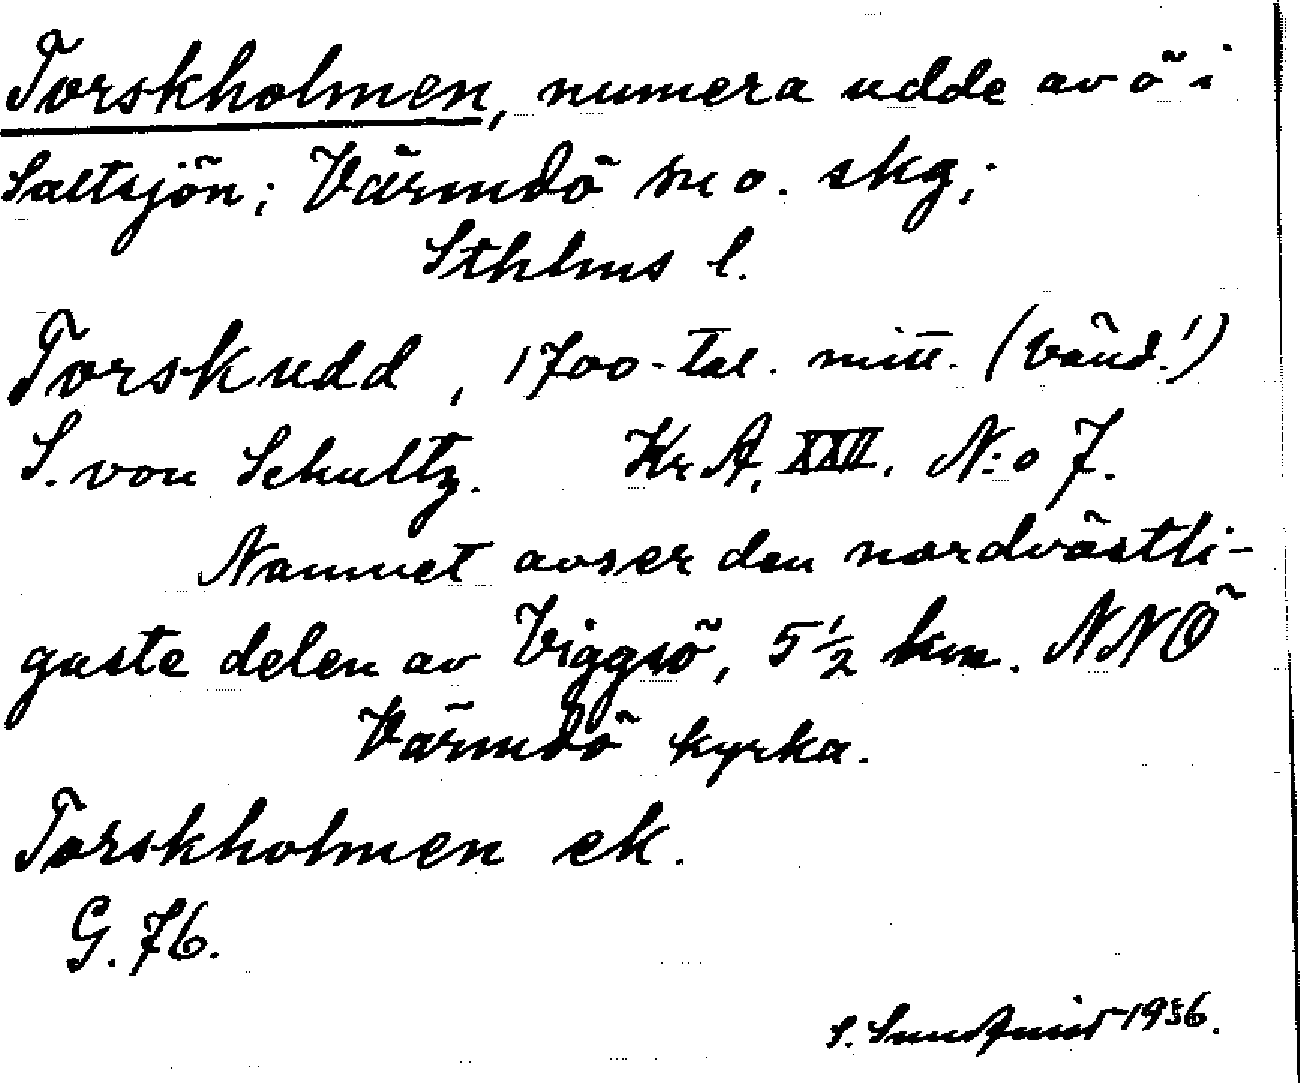 Torskholmen, numera udde av ö i
Saltsjön; Värmdö sn o. skg;
Sthlms l.
Torskudd, 1700-tal. mitt. (Vänd!)
S. von Schultz. KrA, XXII. N:o 7.
Namnet avser den nordvästli-
gaste delen av Viggsö, 5½ km. NNÖ
Värmdö kyrka.
Torskholmen ek.
G. 76.
S. Sundquist 1936.